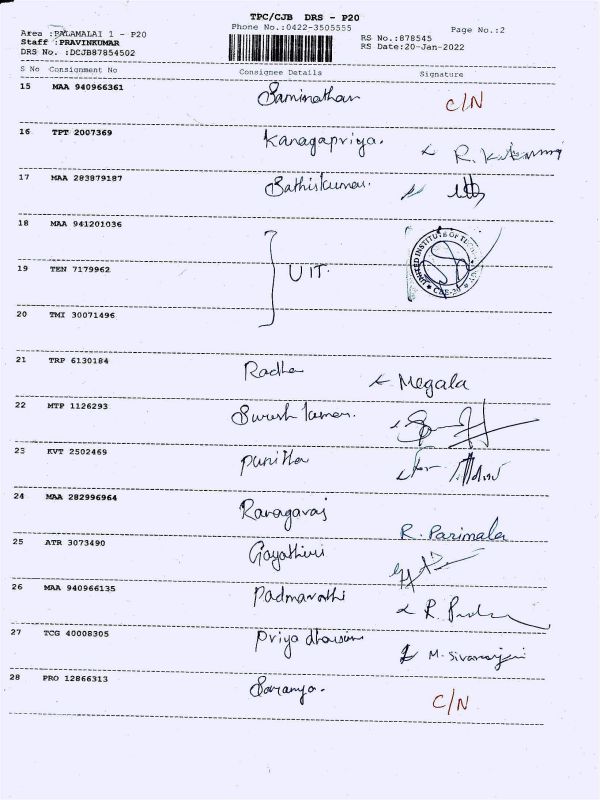 TPC/CJB DRS - P20
Phone No.:0422-3505555
Page No.:2
Area :PALAMALAI 1 - P20
Staff :PRAVINKUMAR
DRS No. :DCJB87854502
RS No.:878545
RS Date:20-Jan-2022
S No Consignment No Consignee Details Signature
15 MAA 940966361 Saminathan C/N
16 TPT 2007369 Kanagapriya.
17 MAA 283879187 Sathiskumar.
18 MAA 941201036
UNITED INSTITUTE OF
19 TEN 7179962 UIT.
20 TMI 30071496
21 TRP 6130184 Radha Megala
22 MTP 1126293 Suresh kumar.
23 KVT 2502469 punitha
24 MAA 282996964 R. Parimala
25 ATR 3073490 Gayathiri
26 MAA 940966135
27 TCG 40008305
28 PRO 12866313 Saranya. C/N